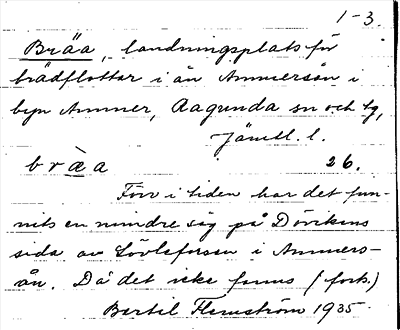 1-3.
Bräa, landningsplats för
brädflottar i ån Ammerån i
byn Ammer, Ragunda sn och tg,
Jämtl. l.
bràa 26.
Förr i tiden har det fun-
nits en mindre sig på Dövikens
sida av Lövleforsen i Ammers-
ån. Då det icke finns (forts.)
Bertil Flemström 1935.